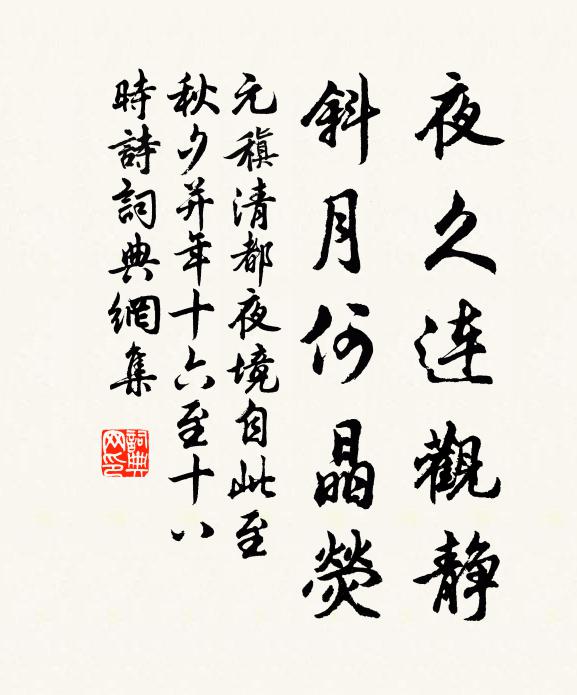 夜久连觀静
斜月何晶熒
元稹清都夜境自此至
秋夕并年十六至十八
時詩詞典網集
詞典网印